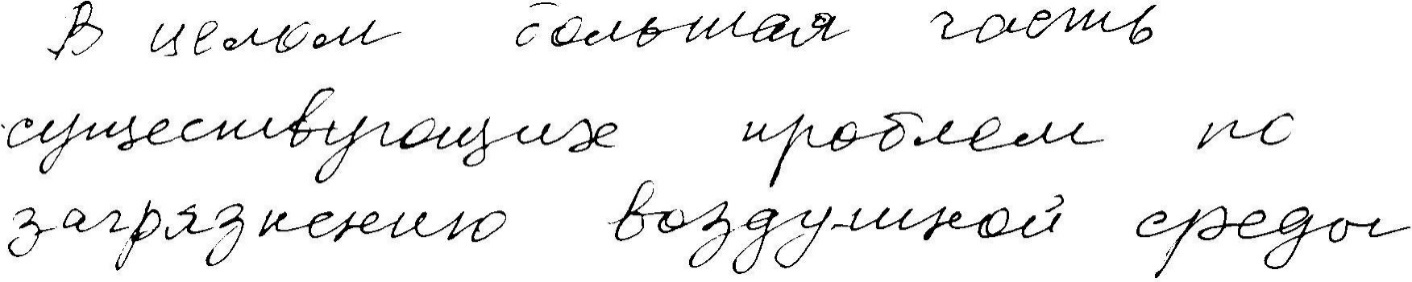 В целом большая часть
существующих проблем по
загрязнению воздушной среды